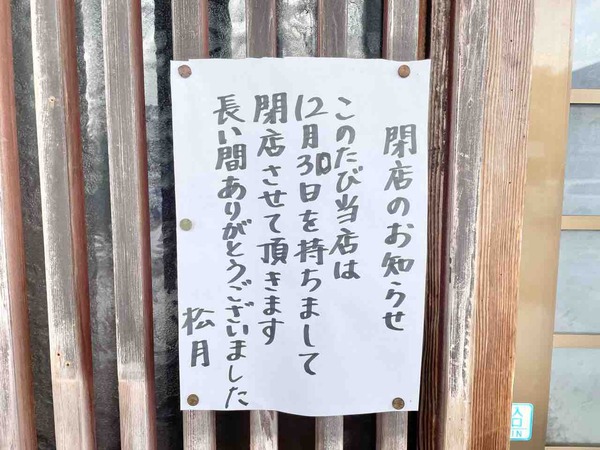 閉店のお知らせ
このたび当店は
12月30日を持ちまして
閉店させて頂きます
長い間ありがとうございました
松月
入口
IN